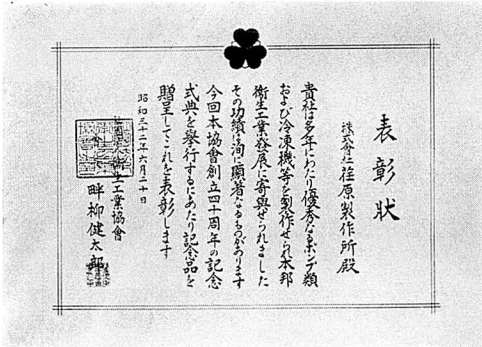 表彰状
株式會社荏原製作所殿
貴社は多年にわたり優秀なるポンプ類
および冷凍機等を製作せられ本邦
衛生工業發展に寄與せられました
その功績は洵に顯著なるものがあります
今回本協會創立四十周年の記念
式典を舉行するにあたり記念品を
贈呈してこれを表彰します
昭和三十二年六月二十日
社團法人衛生工業協會
會長 畔柳健太郎